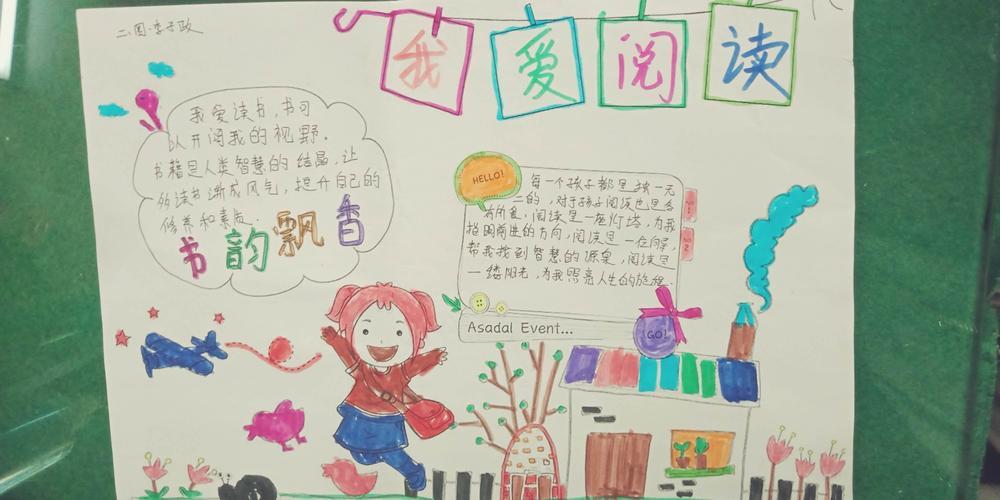 二.四.李子政
我爱阅读
我爱读书,书可
以开阔我的视野.
书籍是人类智慧的结晶,让
的读书渐成风气,提升自己的
修养和素质.
书韵飘香
HELLO!
每一个孩子都是独一无
二的,对于孩子阅读也是各
有所爱,阅读是一座灯塔,为我
指明前进的方向,阅读是一位向导,
帮我找到智慧的源泉,阅读是
一缕阳光,为我照亮人生的旅程.
NO.1
NO.2
Asadal Event...
GO!